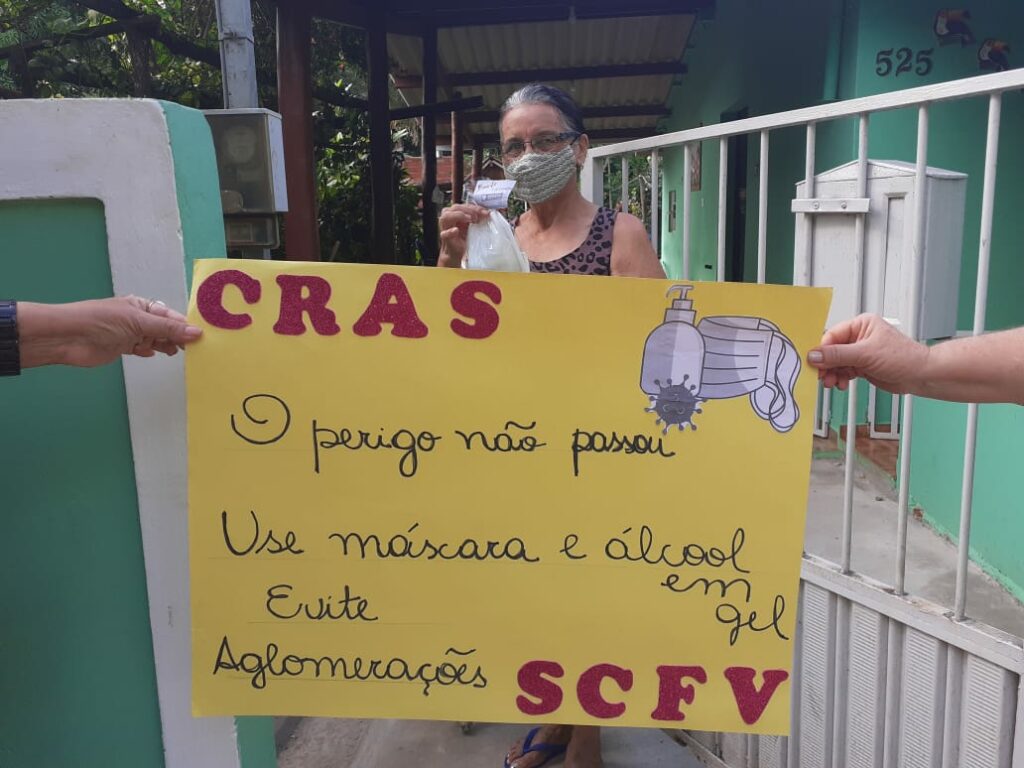 525
CRAS
O perigo não passou
Use máscara e álcool
em
gel
Evite
Aglomerações
SCFV